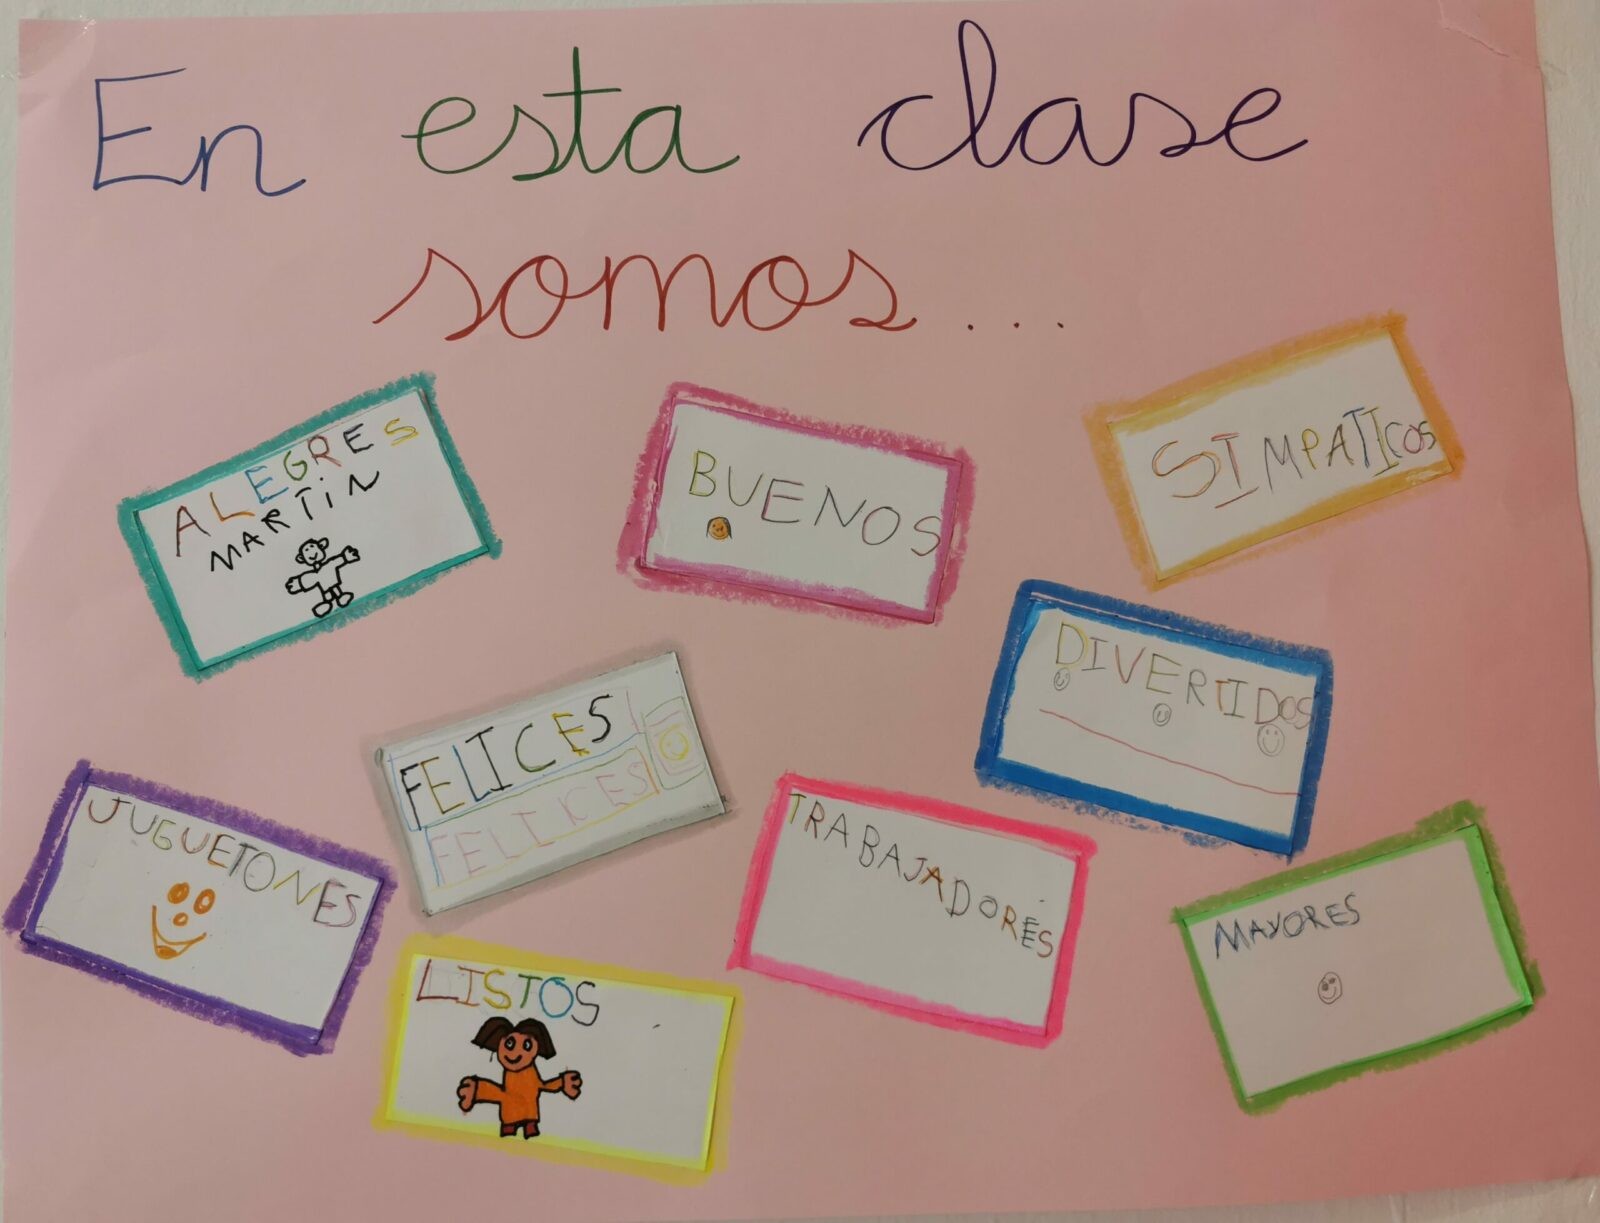 En esta clase
somos...
ALEGRES
MARTIN
BUENOS
SIMPATICOS
DIVERTIDOS
FELICES
FELICES
JUGUETONES
TRABAJADORES
MAYORES
LISTOS